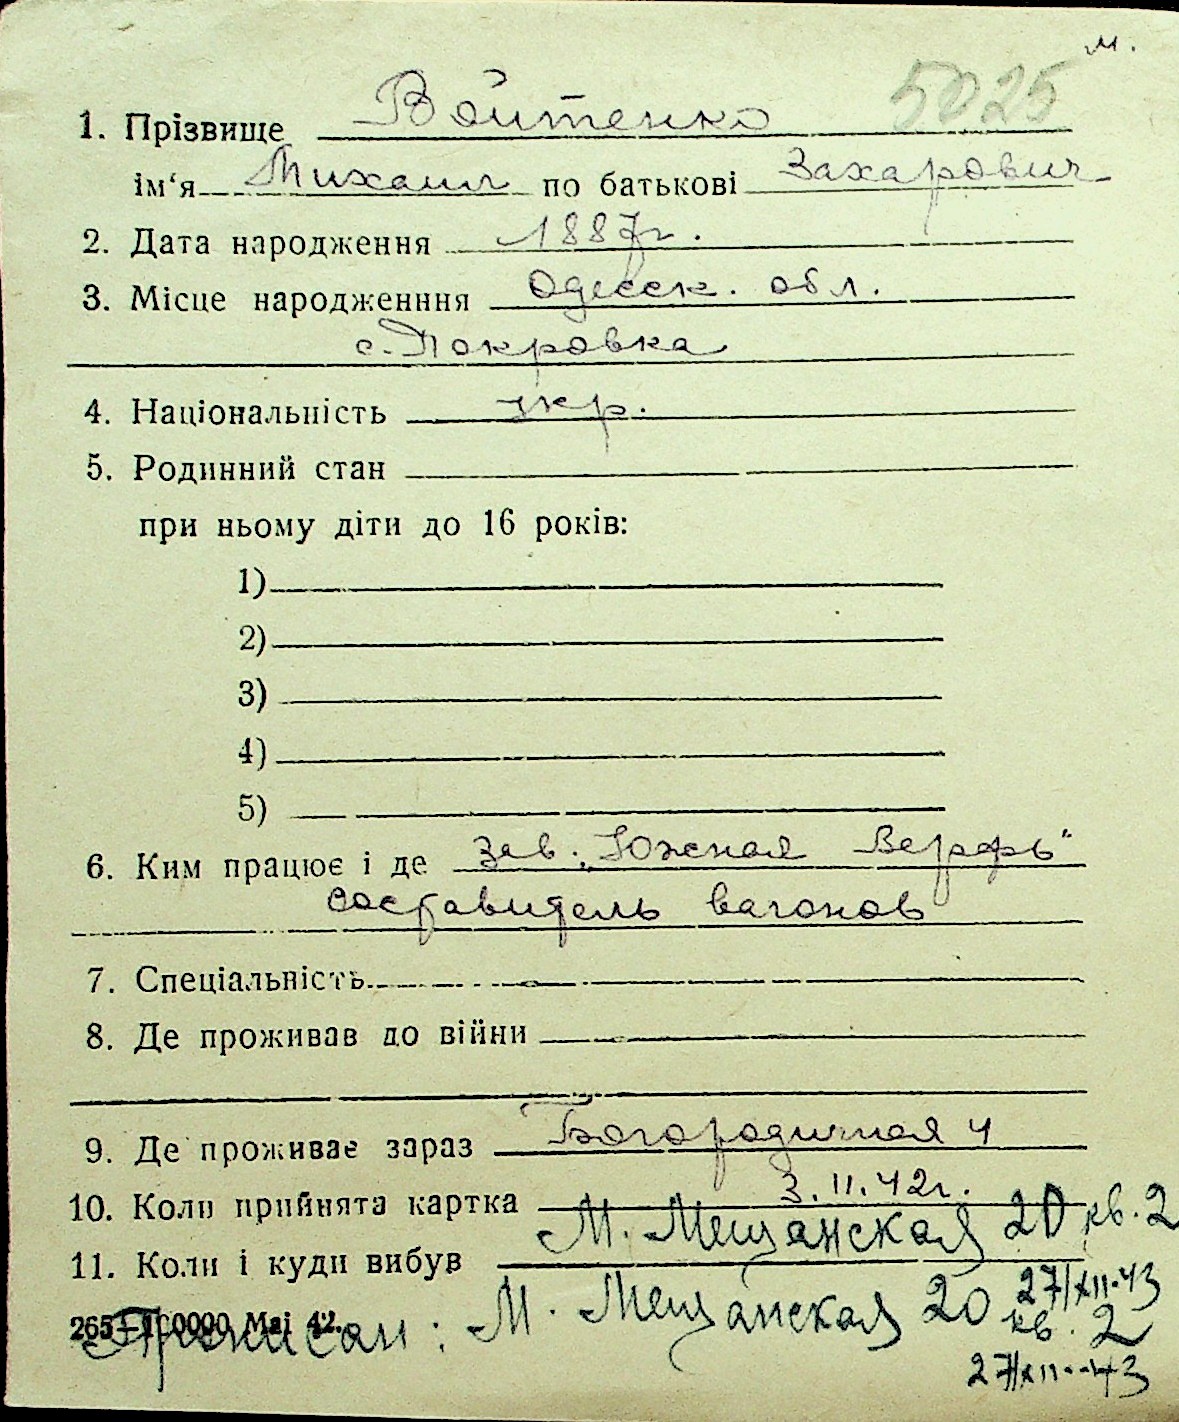 м.
5025
1. Прізвище Войтенко
ім‘я Михаил по батькові Захарович
2. Дата народження 1887г.
3. Місце народженння Одесск. обл.
с. Покровка
4. Національність укр.
5. Родинний стан
при ньому діти до 16 років:
1)
2)
3)
4)
5)
6. Ким працює і де зав. „Южная Верфь"
Составитель вагонов
7. Спеціальність
8. Де проживав до війни
9. Де проживає зараз Богородичная 4
10. Коли прийнята картка 3.II.42г.
М. Мещанская 20 кв. 2
11. Коли і куди вибув
27/XII-43
265—100000 Маі 42.
Прописан: М. Мещанская 20 кв. 2
27/XII-43